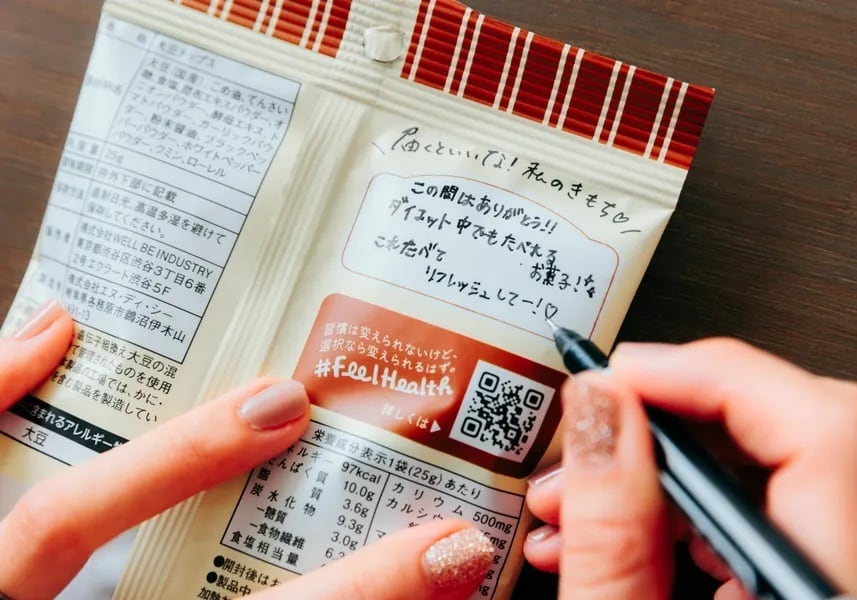 名 称 大豆チップス
大豆(国産)、こめ油、てんさい
糖、食塩、昆布エキスパウダー、オ
ニオンパウダー、酵母エキス、ト
マトパウダー、ガーリックパウ
ダー、粉末醤油、ブラックペッ
パーパウダー、ホワイトペッパー
パウダー、クミン、ローレル
内容量 25g
枠外下部に記載
保存方法 直射日光、高温多湿を避けて
保存してください。
株式会社WELL BE INDUSTRY
東京都渋谷区渋谷3丁目6番
2号エクラート渋谷5F
株式会社エヌ・ディ・シー
岐阜県各務原市鵜沼伊木山
遺伝子組換え大豆の混
で管理されたものを使用
本製品の工場では、かに・
を含む製品を製造してい
含まれるアレルギー
大豆
届くといいな!私のきもち♡
この間はありがとう!!
ダイエット中でもたべれる
お菓子!
これたべて
リフレッシュしてー!♡
習慣は変えられないけど、
選択なら変えられるはず。
#FeelHealth
詳しくは▶
栄養成分表示1袋(25g)あたり
エネルギー 97kcal
たんぱく質 10.0g
脂質 3.6g
炭水化物 9.3g
-糖質 3.0g
-食物繊維
食塩相当量
カリウム 500mg
カルシウ
●開封後はお
●製品中
加熱